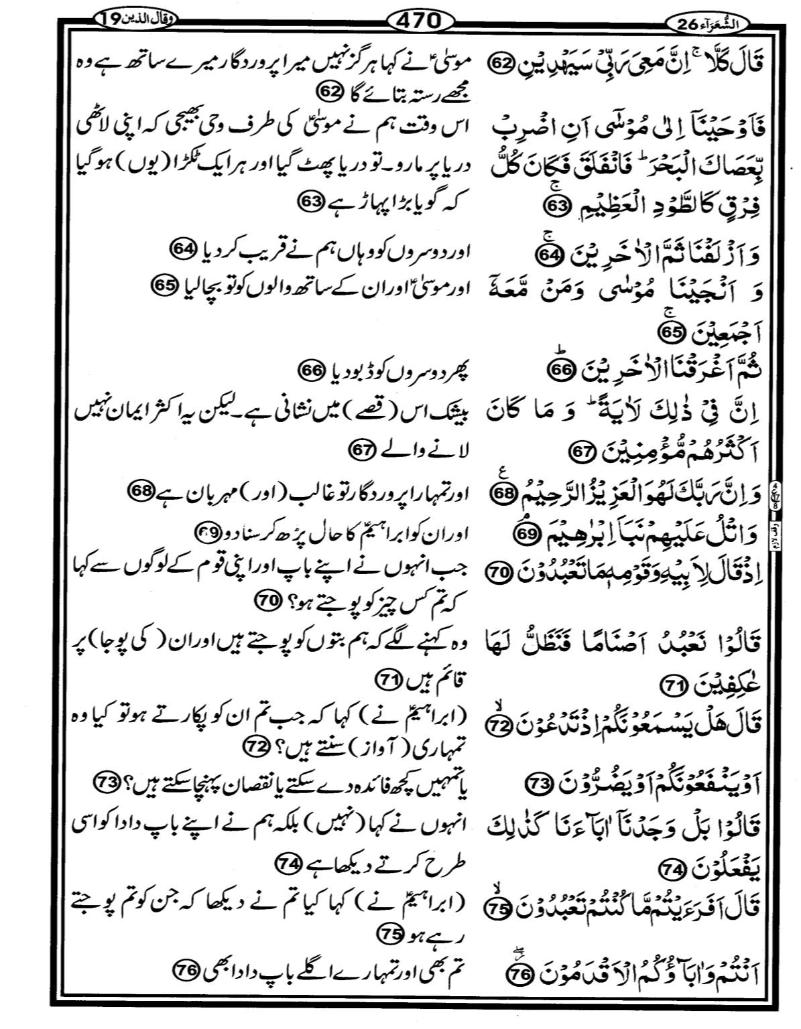 الشُّعَرَآء 26
470
وقال الذين 19
قَالَ كَلَّا ۚ اِنَّ مَعِیَ رَبِّیۡ سَیَہۡدِیۡنِ 62
موسٰیؑ نے کہا ہرگز نہیں میرا پروردگار میرے ساتھ ہے وہ
مجھے رستہ بتائے گا 62
فَاَوۡحَیۡنَاۤ اِلٰی مُوۡسٰۤی اَنِ اضۡرِبۡ
بِّعَصَاکَ الۡبَحۡرَ ؕ فَانۡفَلَقَ فَکَانَ کُلُّ
فِرۡقٍ کَالطَّوۡدِ الۡعَظِیۡمِ ۚ 63
اس وقت ہم نے موسٰیؑ کی طرف وحی بھیجی کہ اپنی لاٹھی
دریا پر مارو۔ تو دریا پھٹ گیا اور ہر ایک ٹکڑا (یوں) ہو گیا
کہ گویا بڑا پہاڑ ہے 63
وَ اَزۡلَفۡنَا ثَمَّ الۡاٰخَرِیۡنَ ۚ 64
اور دوسروں کو وہاں ہم نے قریب کر دیا 64
وَ اَنۡجَیۡنَا مُوۡسٰی وَمَنۡ مَّعَہٗۤ
اَجۡمَعِیۡنَ ۚ 65
اور موسٰیؑ اور ان کے ساتھ والوں کو تو بچا لیا 65
ثُمَّ اَغۡرَقۡنَا الۡاٰخَرِیۡنَ ؕ 66
پھر دوسروں کو ڈبو دیا 66
اِنَّ فِیۡ ذٰلِکَ لَاٰیَۃً ؕ وَ مَا کَانَ
اَکۡثَرُہُمۡ مُّؤۡمِنِیۡنَ 67
بیشک اس (قصے) میں نشانی ہے۔ لیکن یہ اکثر ایمان نہیں
لانے والے 67
وَاِنَّ رَبَّکَ لَہُوَ الۡعَزِیۡزُ الرَّحِیۡمُ 68 ع
اور تمہارا پروردگار تو غالب (اور) مہربان ہے 68
وَاتۡلُ عَلَیۡہِمۡ نَبَاَ اِبۡرٰہِیۡمَ ۘ 69
اور ان کو ابراہیمؑ کا حال پڑھ کر سنا دو 69
وقف لازم
اِذۡ قَالَ لِاَبِیۡہِ وَقَوۡمِہٖ مَا تَعۡبُدُوۡنَ 70
جب انہوں نے اپنے باپ اور اپنی قوم کے لوگوں سے کہا
کہ تم کس چیز کو پوجتے ہو؟ 70
قَالُوۡا نَعۡبُدُ اَصۡنَامًا فَنَظَلُّ لَہَا
عٰکِفِیۡنَ 71
وہ کہنے لگے کہ ہم بتوں کو پوجتے ہیں اور ان (کی پوجا) پر
قائم ہیں 71
قَالَ ہَلۡ یَسۡمَعُوۡنَکُمۡ اِذۡ تَدۡعُوۡنَ ۙ 72
(ابراہیمؑ نے) کہا کہ جب تم ان کو پکارتے ہو تو کیا وہ
تمہاری (آواز) سنتے ہیں؟ 72
اَوۡ یَنۡفَعُوۡنَکُمۡ اَوۡ یَضُرُّوۡنَ 73
یا تمہیں کچھ فائدہ دے سکتے یا نقصان پہنچا سکتے ہیں؟ 73
قَالُوۡا بَلۡ وَجَدۡنَاۤ اٰبَآءَنَا کَذٰلِکَ
یَفۡعَلُوۡنَ 74
انہوں نے کہا (نہیں) بلکہ ہم نے اپنے باپ دادا کو اسی
طرح کرتے دیکھا ہے 74
قَالَ اَفَرَءَیۡتُمۡ مَّا کُنۡتُمۡ تَعۡبُدُوۡنَ ۙ 75
(ابراہیمؑ نے) کہا کیا تم نے دیکھا کہ جن کو تم پوجتے
رہے ہو 75
اَنۡتُمۡ وَاٰبَآؤُکُمُ الۡاَقۡدَمُوۡنَ 76
تم بھی اور تمہارے اگلے باپ دادا بھی 76